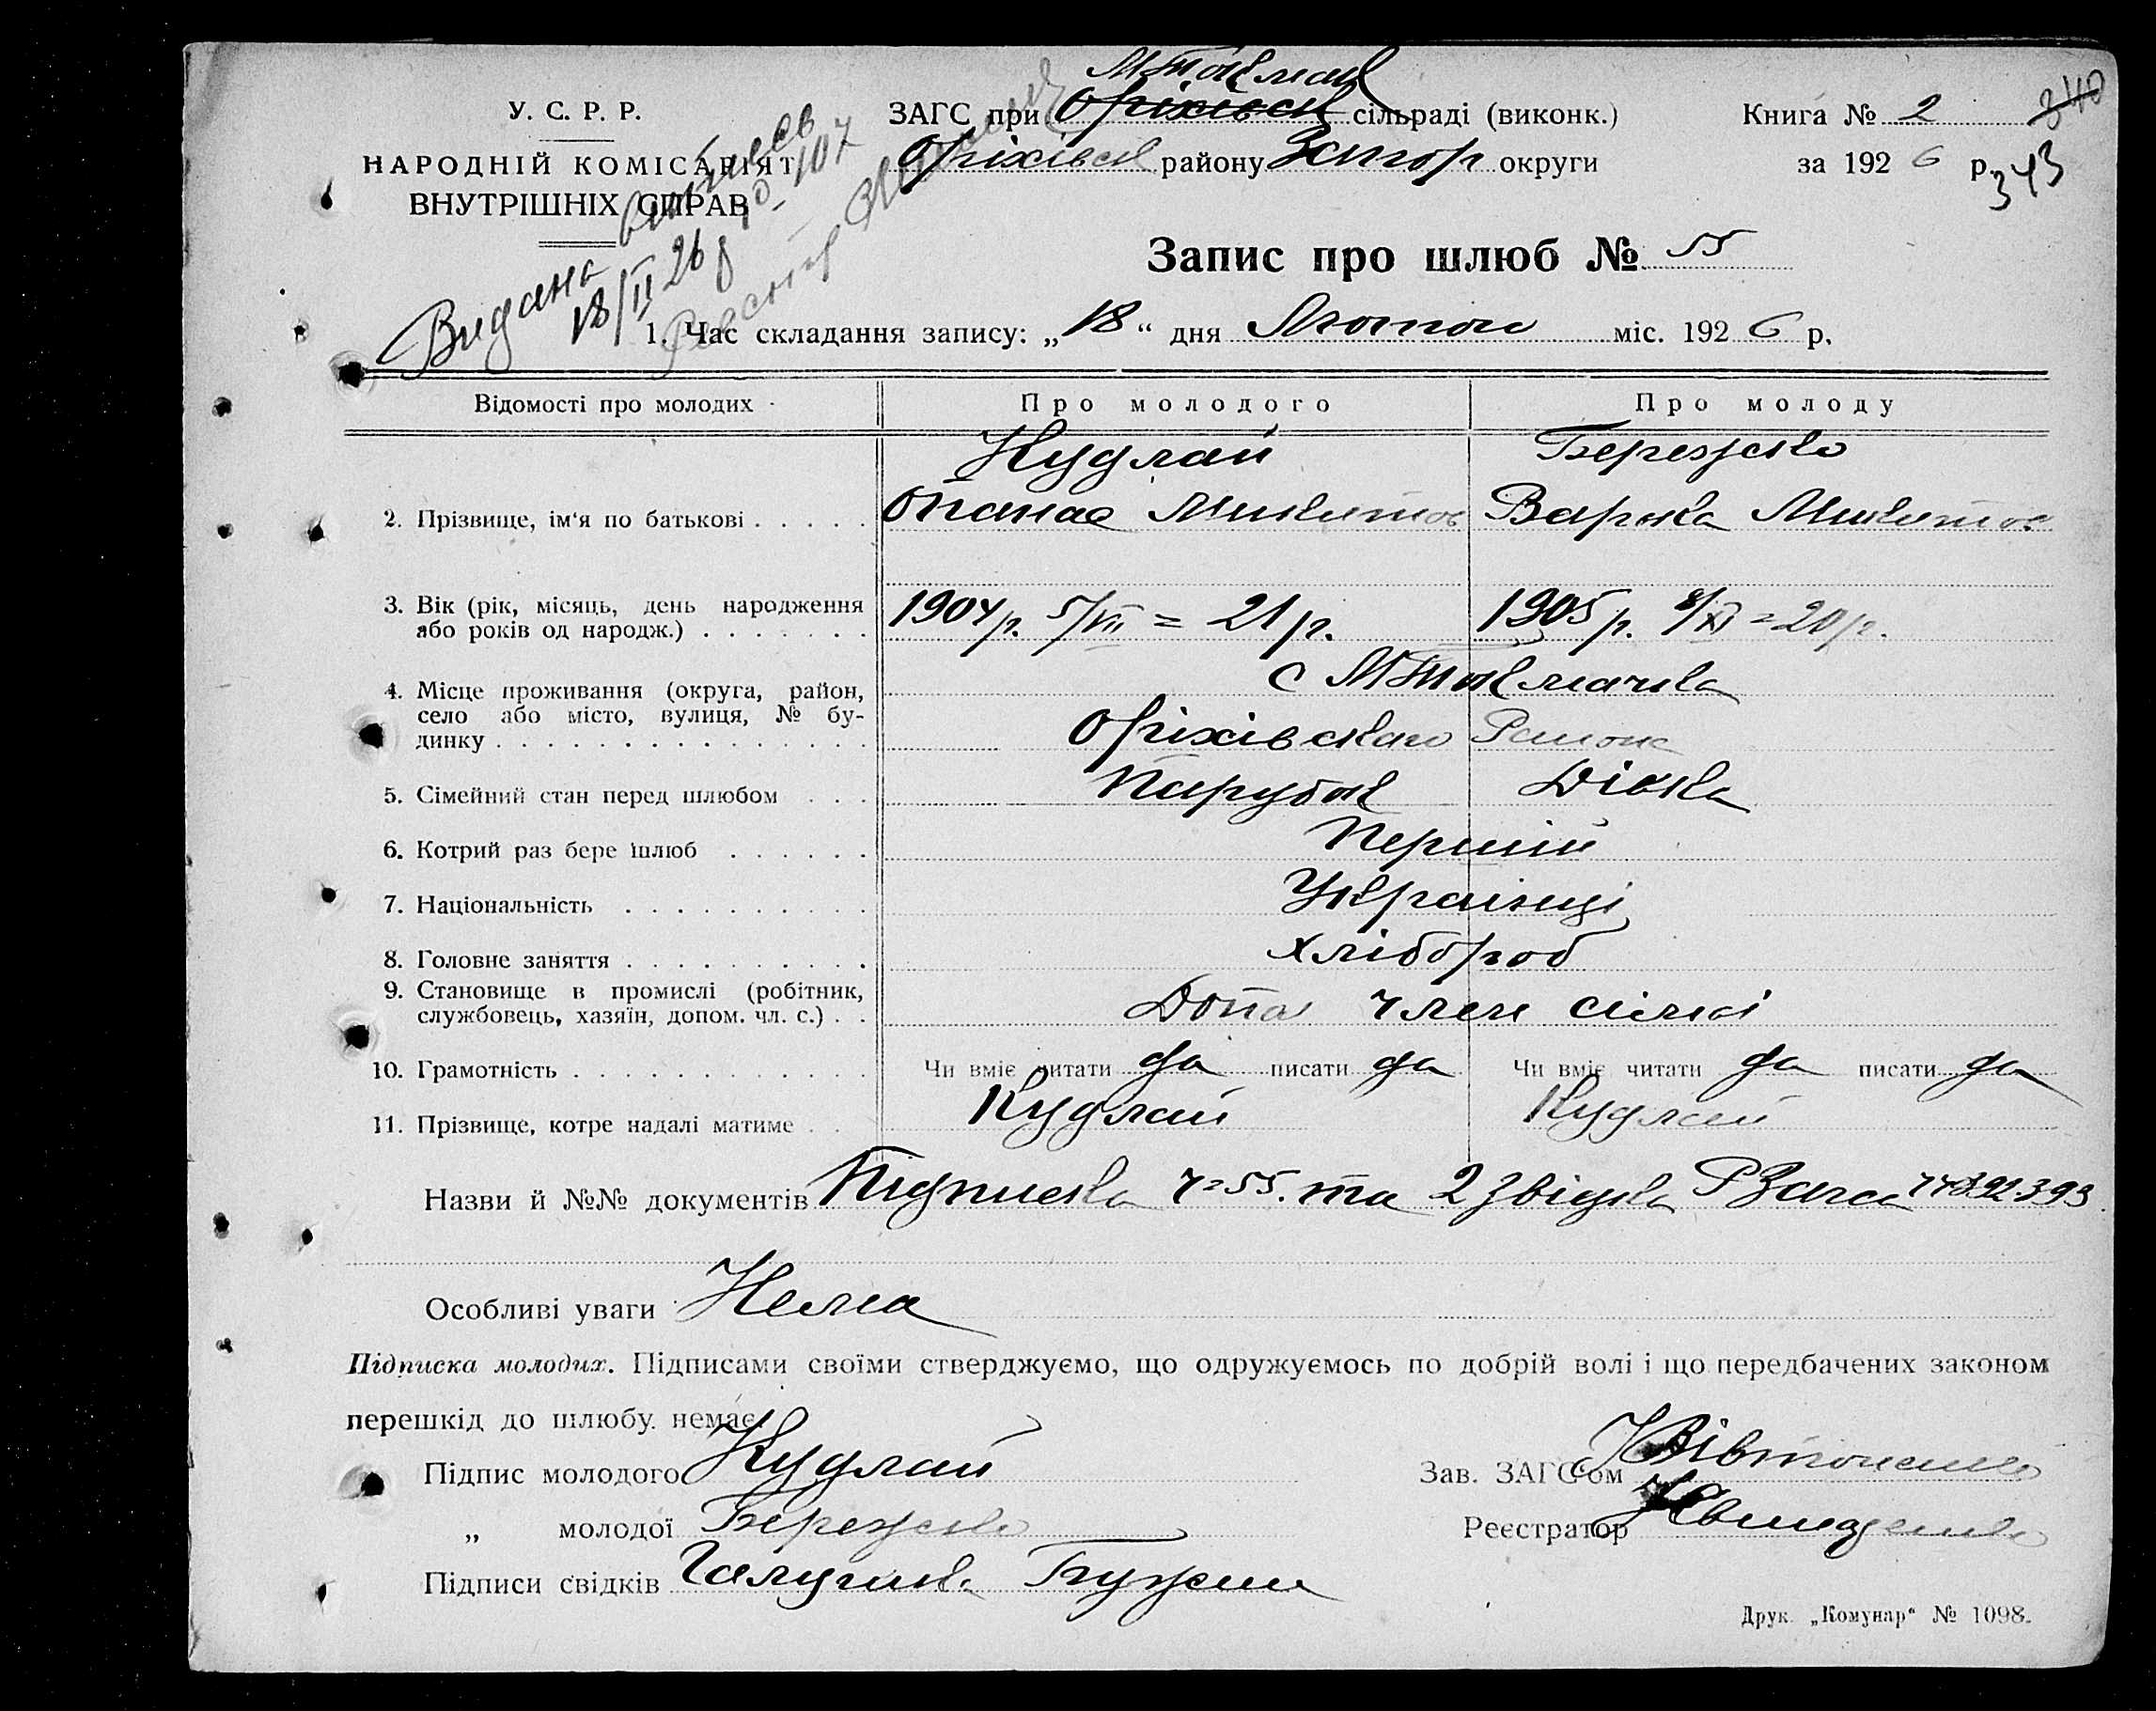 М Токмак
У. С. Р. Р. ЗАГС при Оріхівськ сільраді (виконк.) Книга № 2 340
НАРОДНІЙ КОМІСАРІЯТ Оріхівськ району Запор округи за 1926 р. 343
ВНУТРІШНІХ СПРАВ
Видана витпись
18/II 26 р № 107
Запис про шлюб № 55
1. Час складання запису: „18“ дня Лютого міс. 1926 р.
Відомості про молодих Про молодого Про молоду
Кудлай Бережко
2. Прізвище, ім‘я по батькові . . . . . Опанас Микитов Варька Микитов
3. Вік (рік, місяць, день народження 1904 р. 5/VII = 21 р. 1905 р. 8/XI = 20 р.
або років од народж.) . . . . . . .
4. Місце проживання (округа, район, с М Токмачка
село або місто, вулиця, № бу- Оріхівского Району
динку . . . . . . . . . . . . . . . .
5. Сімейний стан перед шлюбом . . . Парубок Дівка
6. Котрий раз бере шлюб . . . . . . Перший
7. Національність . . . . . . . . . . Українці
8. Головне заняття . . . . . . . . . . хлібороб
9. Становище в промислі (робітник, Допом член сімьї
службовець, хазяїн, допом. чл. с.) . .
10. Грамотність . . . . . . . . . . . . Чи вміє читати да писати да Чи вміє читати да писати да
11. Прізвище, котре надалі матиме . . Кудлай Кудлай
Назви й №№ документів Підписка ч=55. та 2 звідка РЗагса 392 393
Особливі уваги Нема
Підписка молодих. Підписами своїми стверджуємо, що одружуємось по добрій волі і що передбачених законом
перешкід до шлюбу немає.
Підпис молодого Кудлай Зав. ЗАГС‘ом
„ молодої Бережко Реєстратор
Підписи свідків
Друк. „Комунар“ № 1098.